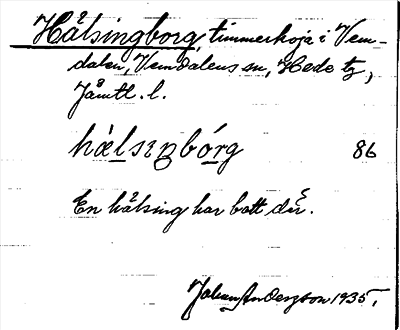 Hälsingborg, timmerkoja i Vem-
dalen, Vemdalens sn, Hede tg,
Jämtl. l.
hä̀lsiŋbórg 86
En hälsing har bott där.
Johan Anderzson 1935.